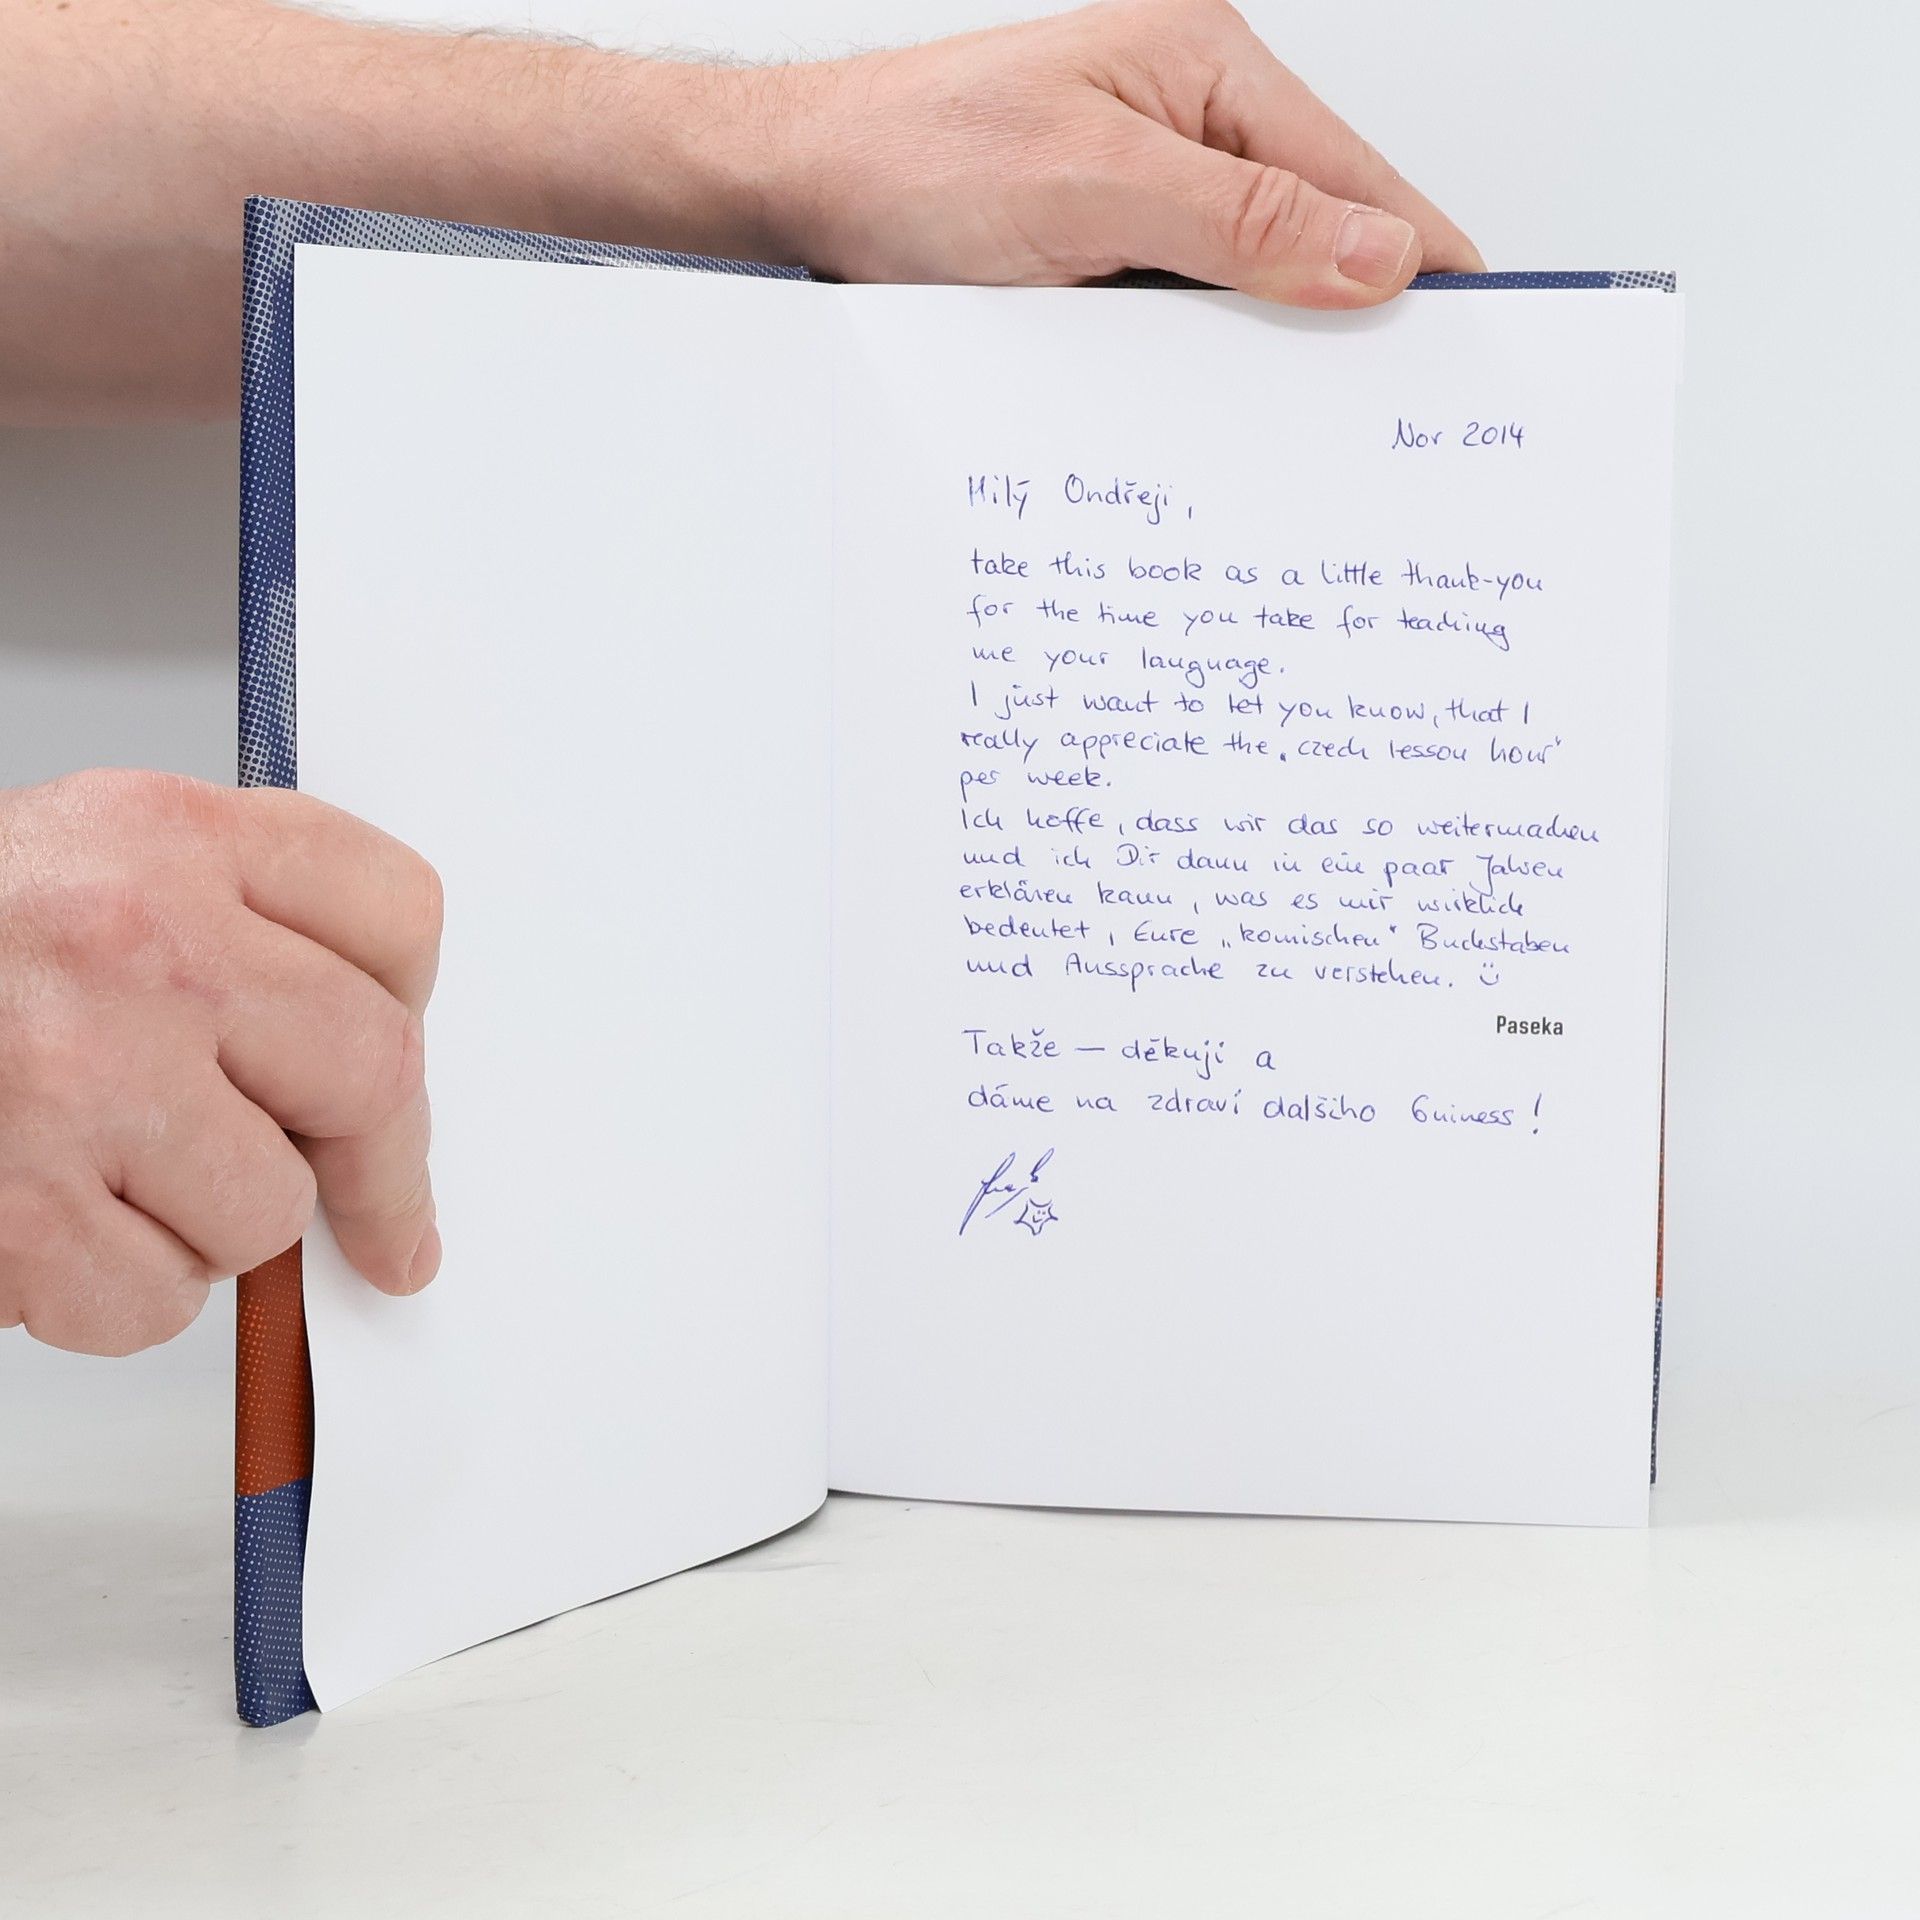 Nov 2014
Milý Ondřeji,
take this book as a little thank-you
for the time you take for teaching
me your language.
I just want to let you know, that I
really appreciate the „czech lesson hour“
per week.
Ich hoffe, dass wir das so weitermachen
und ich Dir dann in ein paar Jahren
erklären kann, was es mir wirklich
bedeutet, Eure „komischen“ Buchstaben
und Aussprache zu verstehen. ü
Paseka
Takže — děkuji a
dáme na zdraví dalšího Guiness!